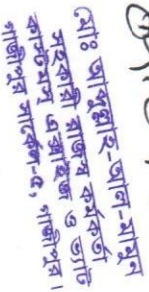 মোঃ আব্দুল্লাহ-আল-মামুন
সহকারী রাজস্ব কর্মকর্তা
কাস্টমস্ এক্সাইজ ও ভ্যাট
গাজীপুর সার্কেল-৫, গাজীপুর।